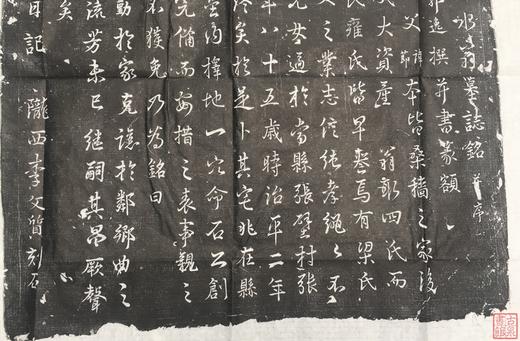 氷翁墓誌銘 并序
郭逸撰并書篆額
父諱節本皆桑穡之家後
大資產 翁彰四氏而
氏雍氏皆早喪焉有梁氏
之業志信純孝繩〻不
女適於當縣張壁村張
年八十五歲時治平二年
矣於是卜其宅兆在縣
擇地一穴命石公創
完備而安措之哀事親之
不獲免乃為銘曰
勤於家克謹於鄰鄉曲之
流芳未已繼嗣其昌厥聲
矣
日記
隴西李父質刻石